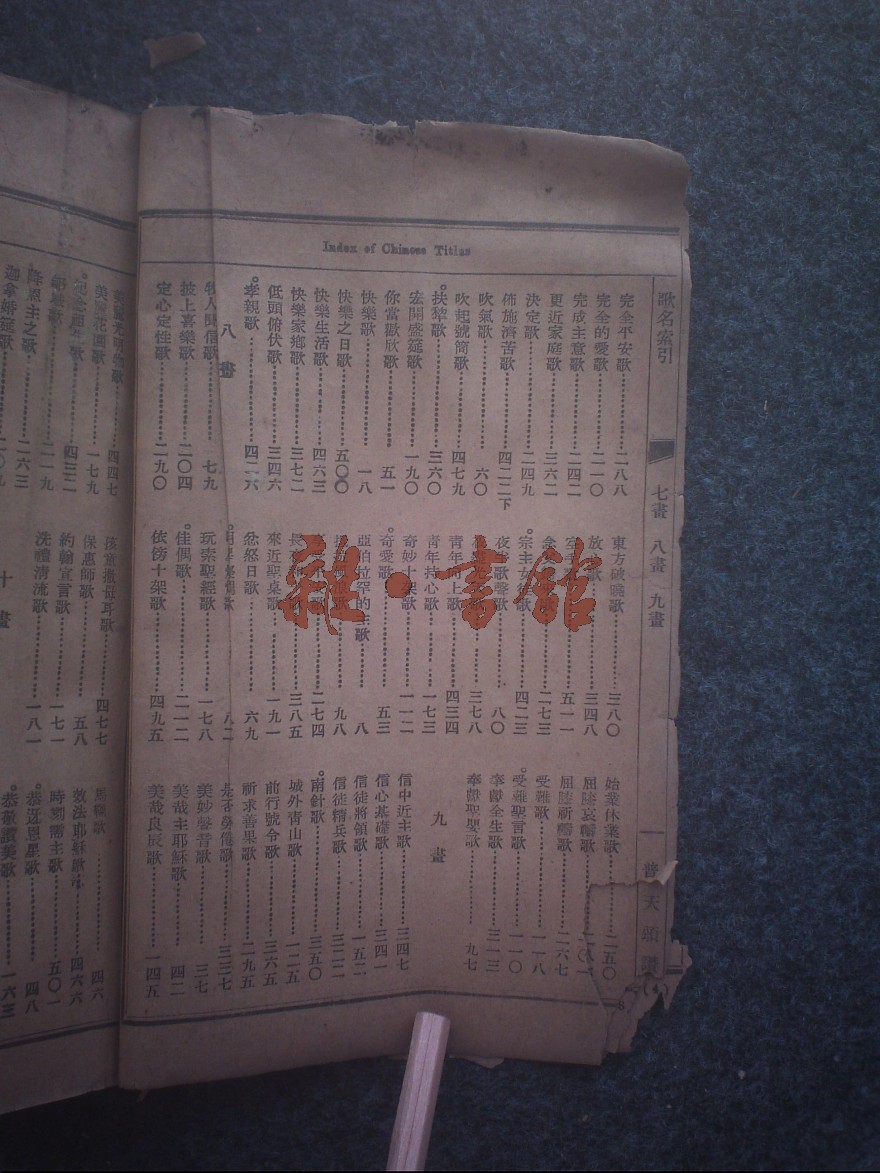 Index of Chinese Titles
歌名索引
七畫 八畫 九畫
普天頌讚
完全平安歌 二八八
完全的愛歌 二一〇
完成主意歌 二四二
更近家庭歌 三六二
決定歌 二四九
佈施濟苦歌 四二二下
吹氣歌 六〇
吹起號筒歌 四七九
。扶犂歌 三六〇
宏開盛筵歌 一九〇
你當歡欣歌 五一
快樂歌 一八
快樂之日歌 五〇〇
快樂生活歌 四六三
快樂家鄉歌 三七二
低頭俯伏歌 三四六
。孝親歌 四二六
八畫
牧人聞信歌 七九
披上喜樂歌 二〇四
定心定性歌 二九〇
東方破曉歌 三八〇
放 歌 三四八
五一一
二七三
。宗主 歌 四二三
夜 歌聲歌 八〇
三七八
青年向上歌 四三四
青年持心歌 一七三
奇妙十架歌 一一二
。奇愛歌 五三
亞伯拉罕的主歌 八
九八
二七四
三八五
來近聖桌歌 一九一
忿怒日歌 六九
八二
玩索聖經歌 一七八
。佳偶歌 二一二
依傍十架歌 四九五
始業休業歌 二五〇
屈膝哀禱歌
屈膝祈禱歌 二六七
受難歌 一一八
。受難聖言歌 一一〇
奉獻全生歌 三一三
奉獻聖嬰歌 九七
九畫
信中近主歌 三四七
信心基礎歌 三四一
信徒將領歌 一五二
信徒精兵歌 三二二
。南針歌 三五〇
城外青山歌 一二五
前行號令歌 三六五
祈求善果歌 二九五
是否勞倦歌 三三七
美妙聲音歌 三七
美哉主耶穌歌 四二
美哉良辰歌 一四五
四四七
美 花園歌 一七九
四三二
二一九
降 主之歌 二六三
迦拿婚筵歌 二〇九
孩童 母耳歌 四七七
保惠師歌 五八
約翰宣言歌 一七一
洗禮清流歌 一八一
十畫
四六
效法耶穌歌 四六六
時刻需主歌 五〇一
。恭 恩星歌 四八
。恭敬讚美歌 一六三
雜·書館